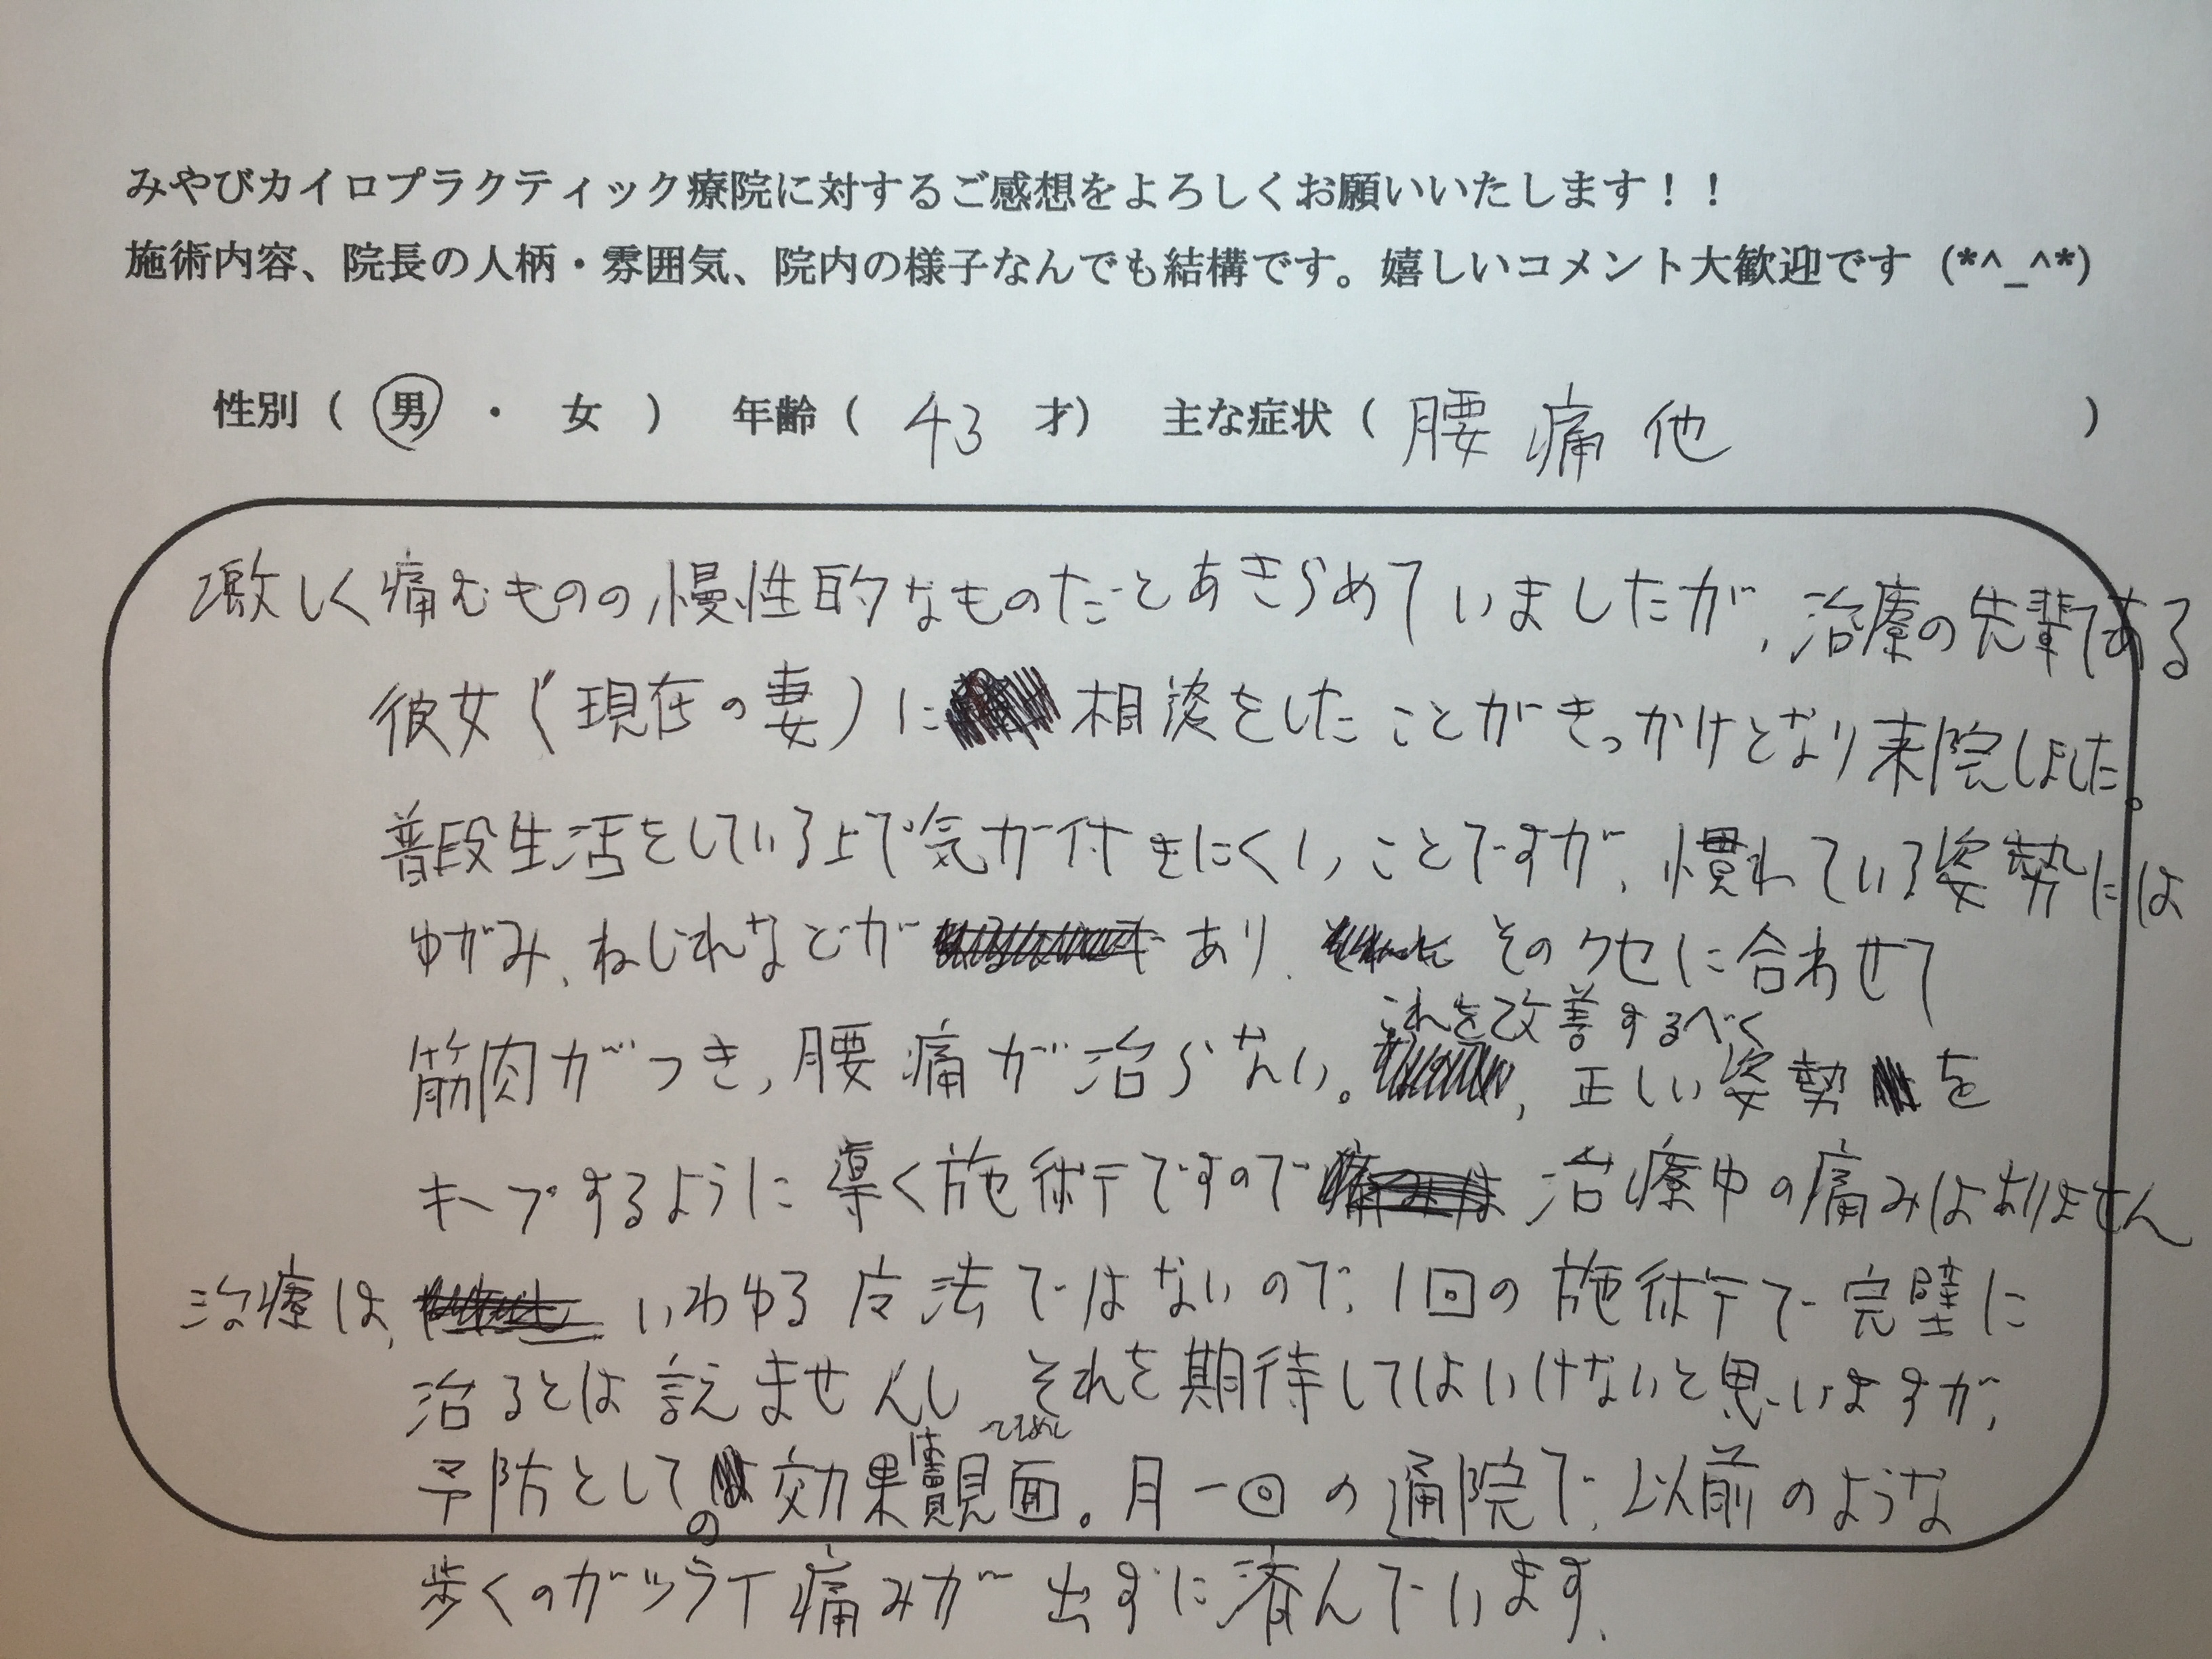 みやびカイロプラクティック療院に対するご感想をよろしくお願いいたします！！
施術内容、院長の人柄・雰囲気、院内の様子なんでも結構です。嬉しいコメント大歓迎です (*^_^*)
性別（ 男 ・ 女 ） 年齢（ 43 才） 主な症状（ 腰痛他 ）
激しく痛むものの、慢性的なものだとあきらめていましたが、治療の先輩である
彼女（現在の妻）に相談をしたことがきっかけとなり来院しました。
普段生活をしている上で気が付きにくいことですが、慣れている姿勢には
ゆがみ、ねじれなどがあり、そのクセに合わせて
筋肉がつき、腰痛が治らない。これを改善するべく、正しい姿勢を
キープするように導く施術ですので治療中の痛みはありません
治療は、いわゆる 法ではないので、1回の施術で完璧に
治るとは言えませんし それを期待してはいけないと思いますが、
予防としての効果は覿面。月一回の通院で、以前のような
てきめん
歩くのがツライ痛みが出ずに済んでいます.